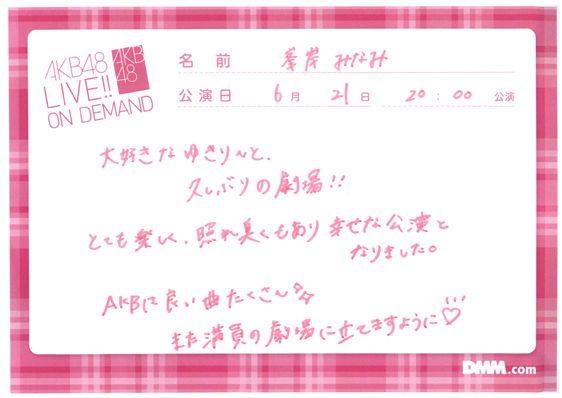 AKB48
LIVE!!
ON DEMAND
AKB
48
名前 峯岸 みなみ
公演日 6月 21日 20:00 公演
大好きなゆきりんと、
久しぶりの劇場!!
とても楽しく、照れ臭くもあり幸せな公演と
なりました。
AKBは良い曲たくさん
また満員の劇場に立てますように♡
DMM.com